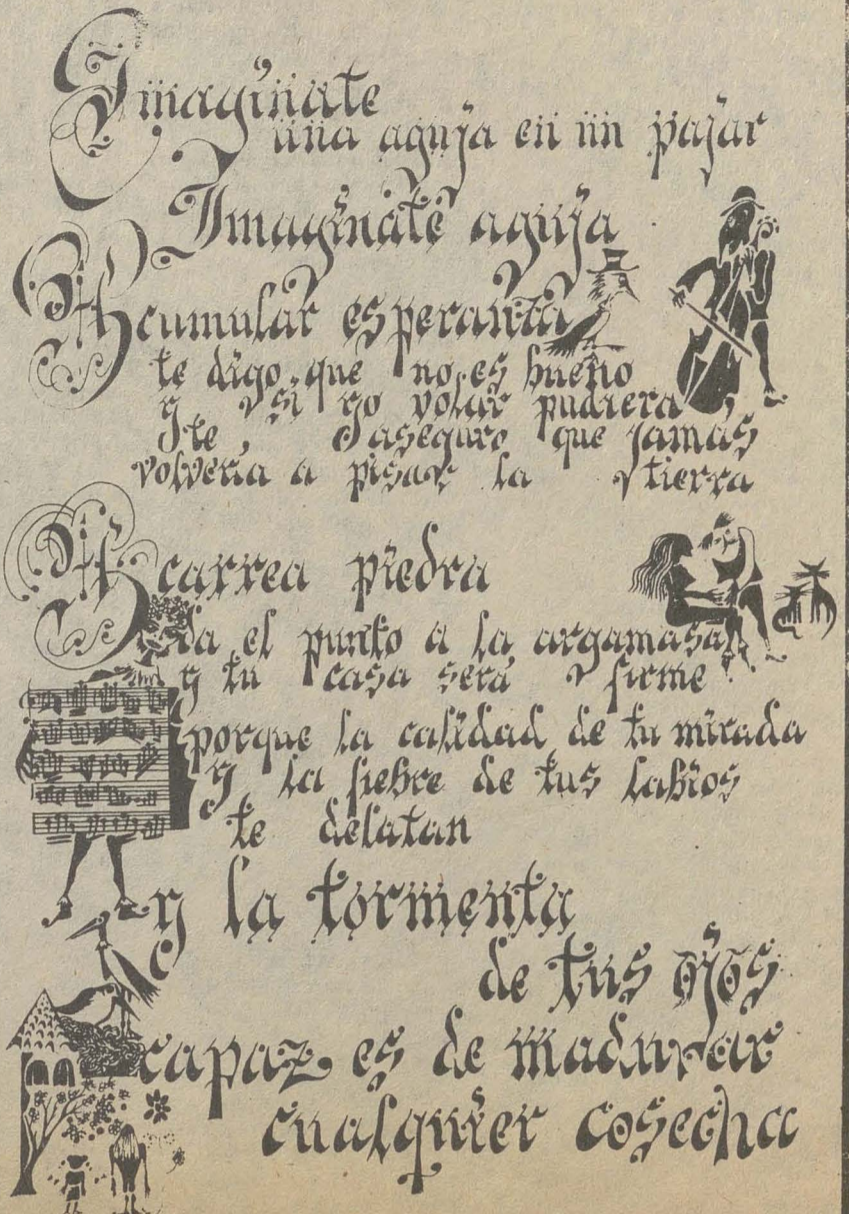 Imaginate
una aguja en un pajar
Imaginate aguja
Acumular esperanza
te digo que no es bueno
y si yo volar pudiera
te aseguro que jamas
volveria a pisar la tierra
Acarrea piedra
Da el punto a la argamasa
y tu casa será firme
porque la calidad de tu mirada
y la fiebre de tus labios
te delatan
y la tormenta
de tus ojos
capaz es de madurar
cualquier cosecha